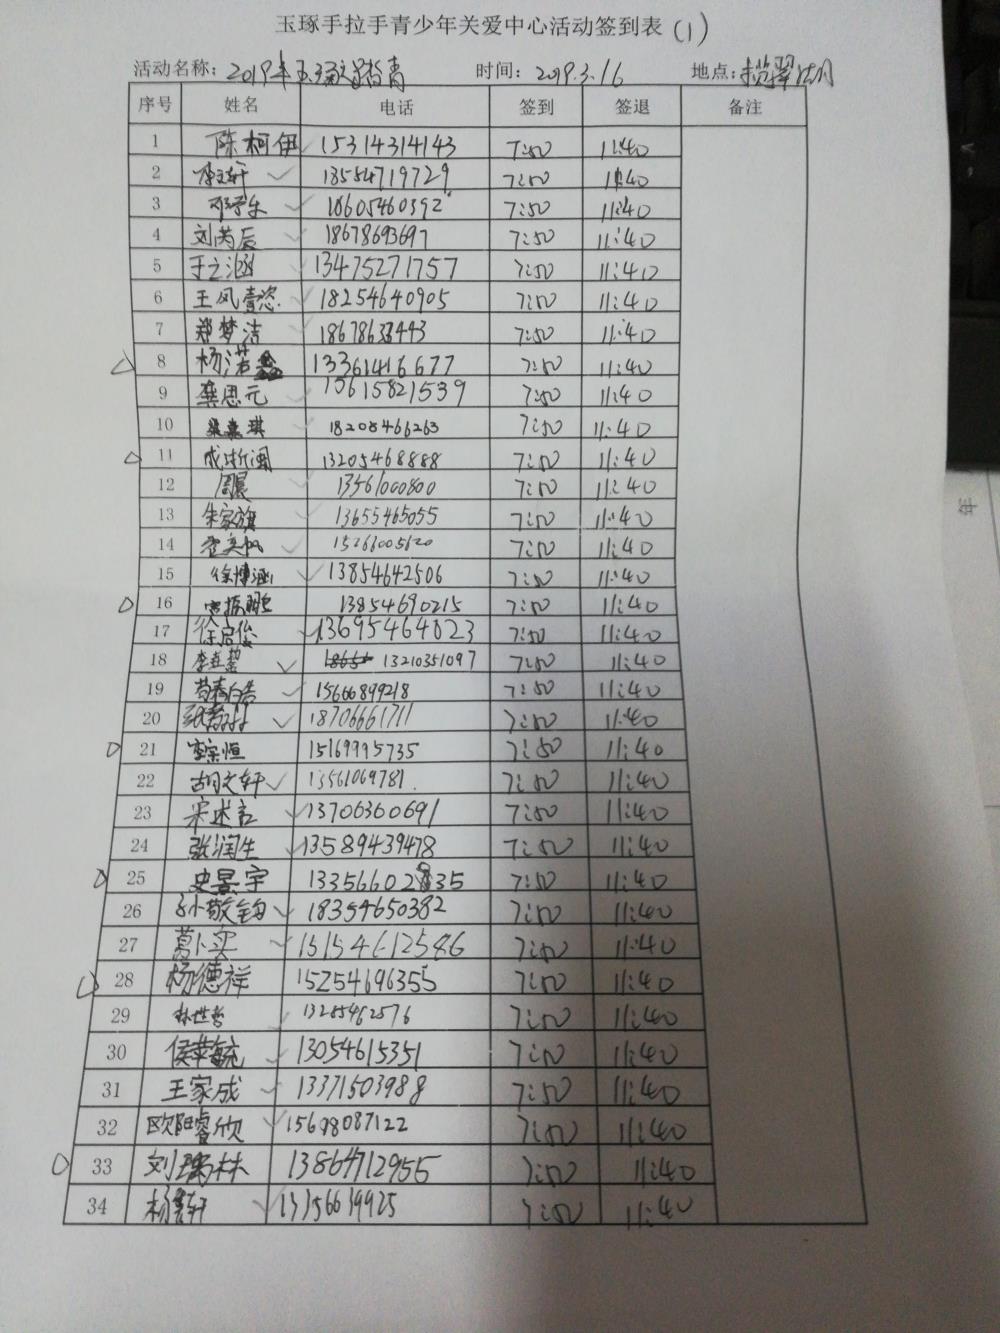 玉琢手拉手青少年关爱中心活动签到表(1)
活动名称: 2019年玉琢 时间: 2019.3.16 地点:
序号 姓名 电话 签到 签退 备注
1 陈柯伊 15314314143 7:50 11:40
2 13554719729 7:50 11:40
3 邓予乐 18605460392 7:50 11:40
4 刘芮辰 18678693697 7:50 11:40
5 于之涵 13475271757 7:50 11:40
6 王凤壹恣 18254640905 7:50 11:40
7 郑梦洁 7:50 11:40
8 杨诺鑫 13361416677 7:50 11:40
9 龚思元 15615821539 7:50 11:40
10 18205466263 7:50 11:40
11 成浙闽 13205468888 7:50 11:40
12 周晨 13561000800 7:50 11:40
13 朱家旗 13655465055 7:50 11:40
14 7:50 11:40
15 徐博涵 13854642506 7:50 11:40
16 13854690215 7:50 11:40
17 徐启俊 13695464823 7:50 11:40
18 13210351097 7:50 11:40
19 15666899218 7:50 11:40
20 18706661711 7:50 11:40
21 李宗恒 15169995735 7:50 11:40
22 胡文轩 13561069781 7:50 11:40
23 宋述言 13706360691 7:50 11:40
24 张润生 13589439478 7:50 11:40
25 史景宇 13356602835 7:50 11:40
26 孙敬钧 18354650382 7:50 11:40
27 葛卜实 15154612586 7:50 11:40
28 杨德祥 15254696355 7:50 11:40
29 林世哲 13285462576 7:50 11:40
30 侯苹毓 13054615351 7:50 11:40
31 王家成 13371503988 7:50 11:40
32 欧阳睿欣 15698087122 7:50 11:40
33 刘瑞林 13864712955 7:50 11:40
34 13156619925 7:50 11:40
年